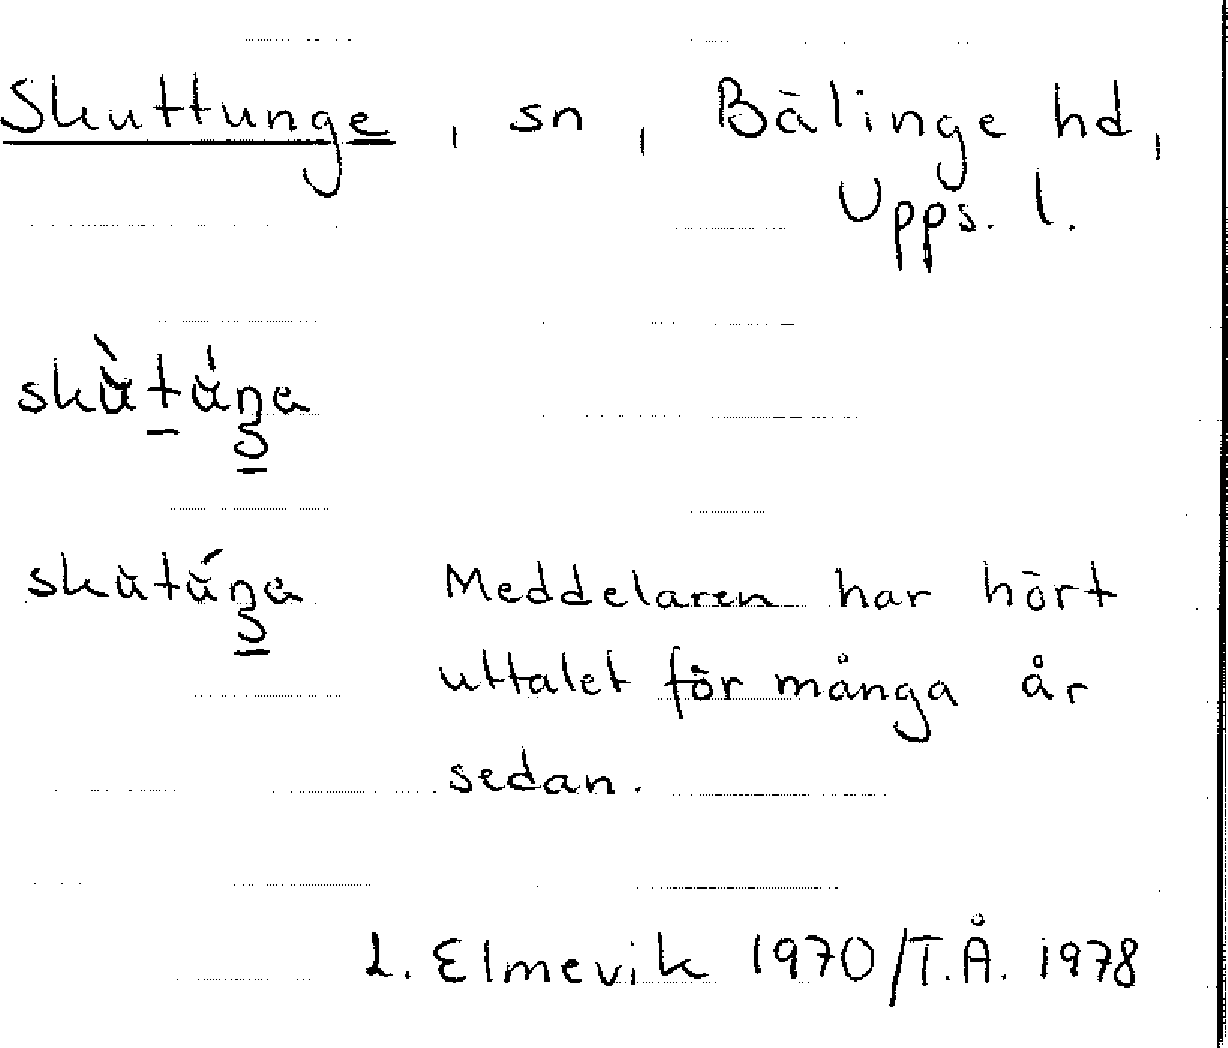 Skuttunge, sn, Bälinge hd,
Upps. l.
Meddelaren har hört
uttalet för många år
sedan.
L. Elmevik 1970/T.Å. 1978